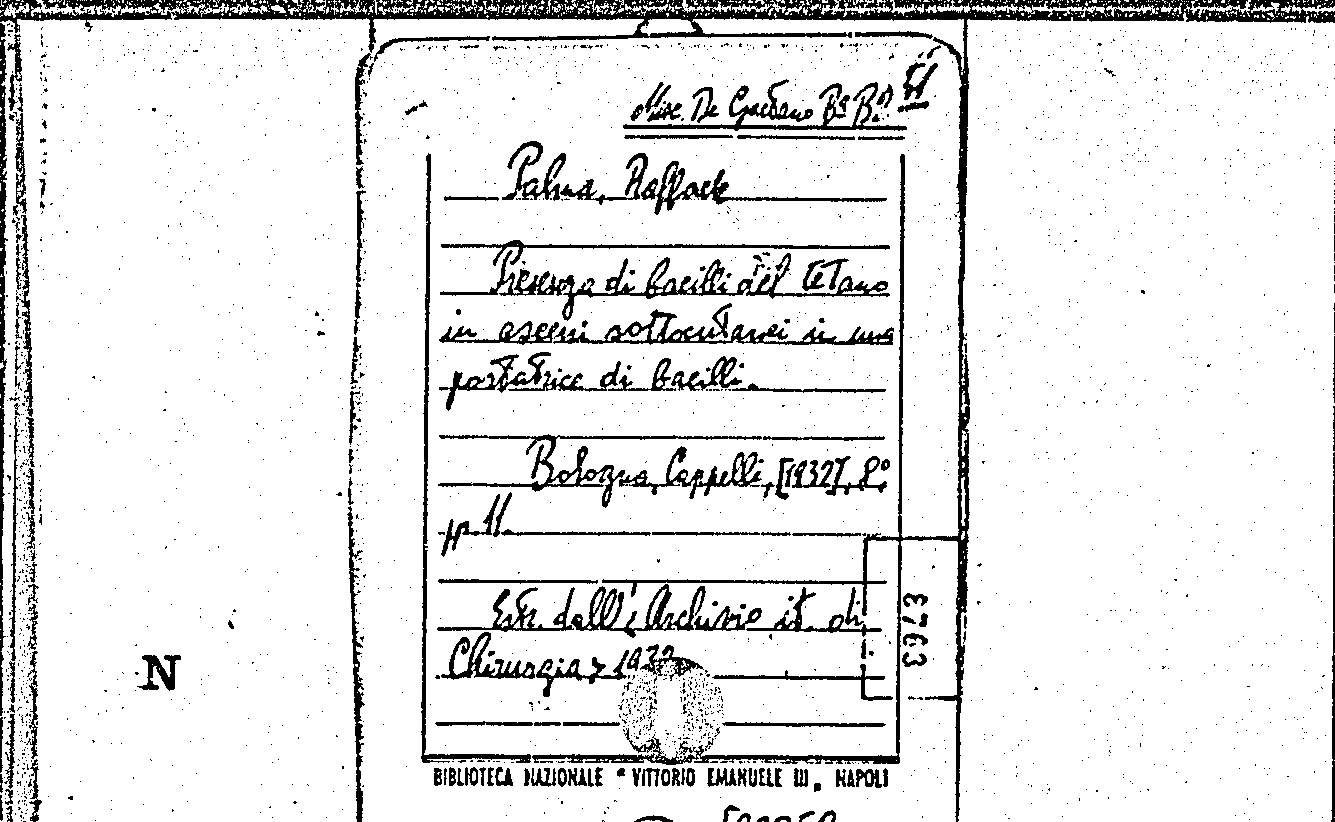 Misc. De Gaetano Bª Bª
Palma, Raffaele
Presenza di bacilli del tetano
in ascessi sottocutanei in una
portatrice di bacilli.
Bologna, Cappelli, [1932], 8º
p. 11.
Estr. dall'«Archivio it. di
Chirurgia» 1932
3763
N
BIBLIOTECA NAZIONALE "VITTORIO EMANUELE III„ NAPOLI